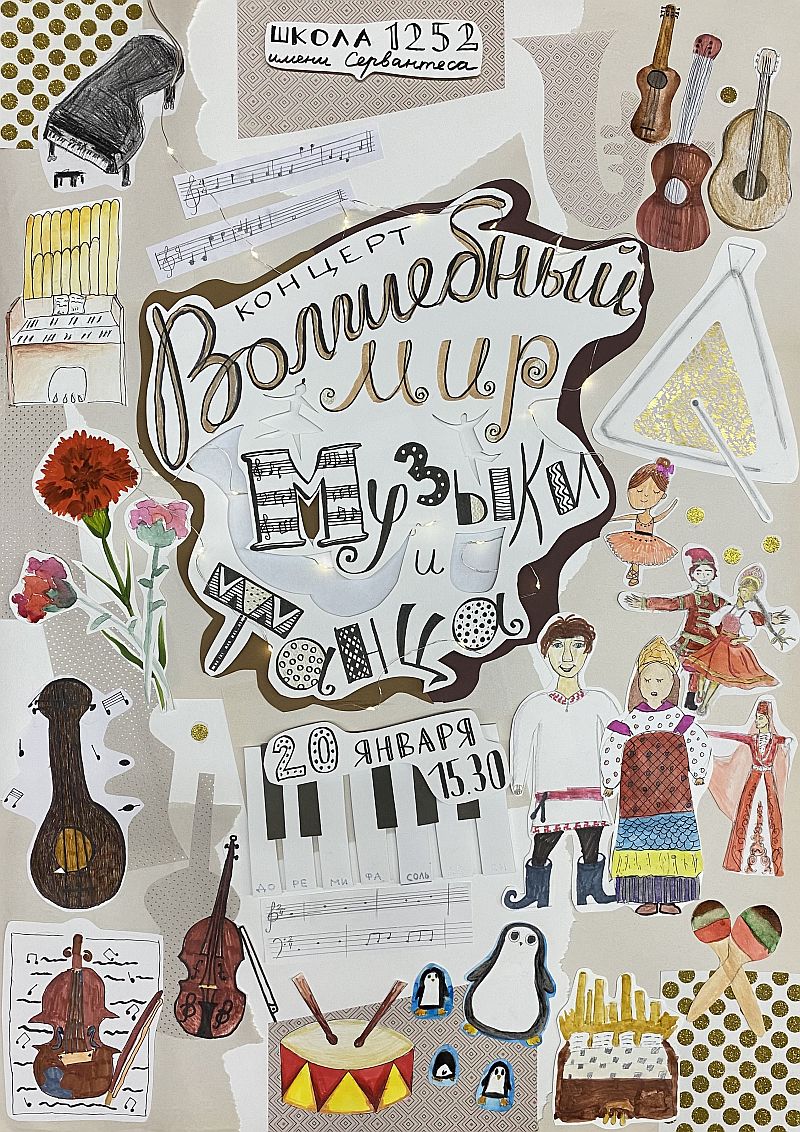 ШКОЛА 1252
имени Сервантеса
КОНЦЕРТ
Волшебный
мир
Музыки
и
танца
20 ЯНВАРЯ
15.30
ДО РЕ МИ ФА СОЛЬ